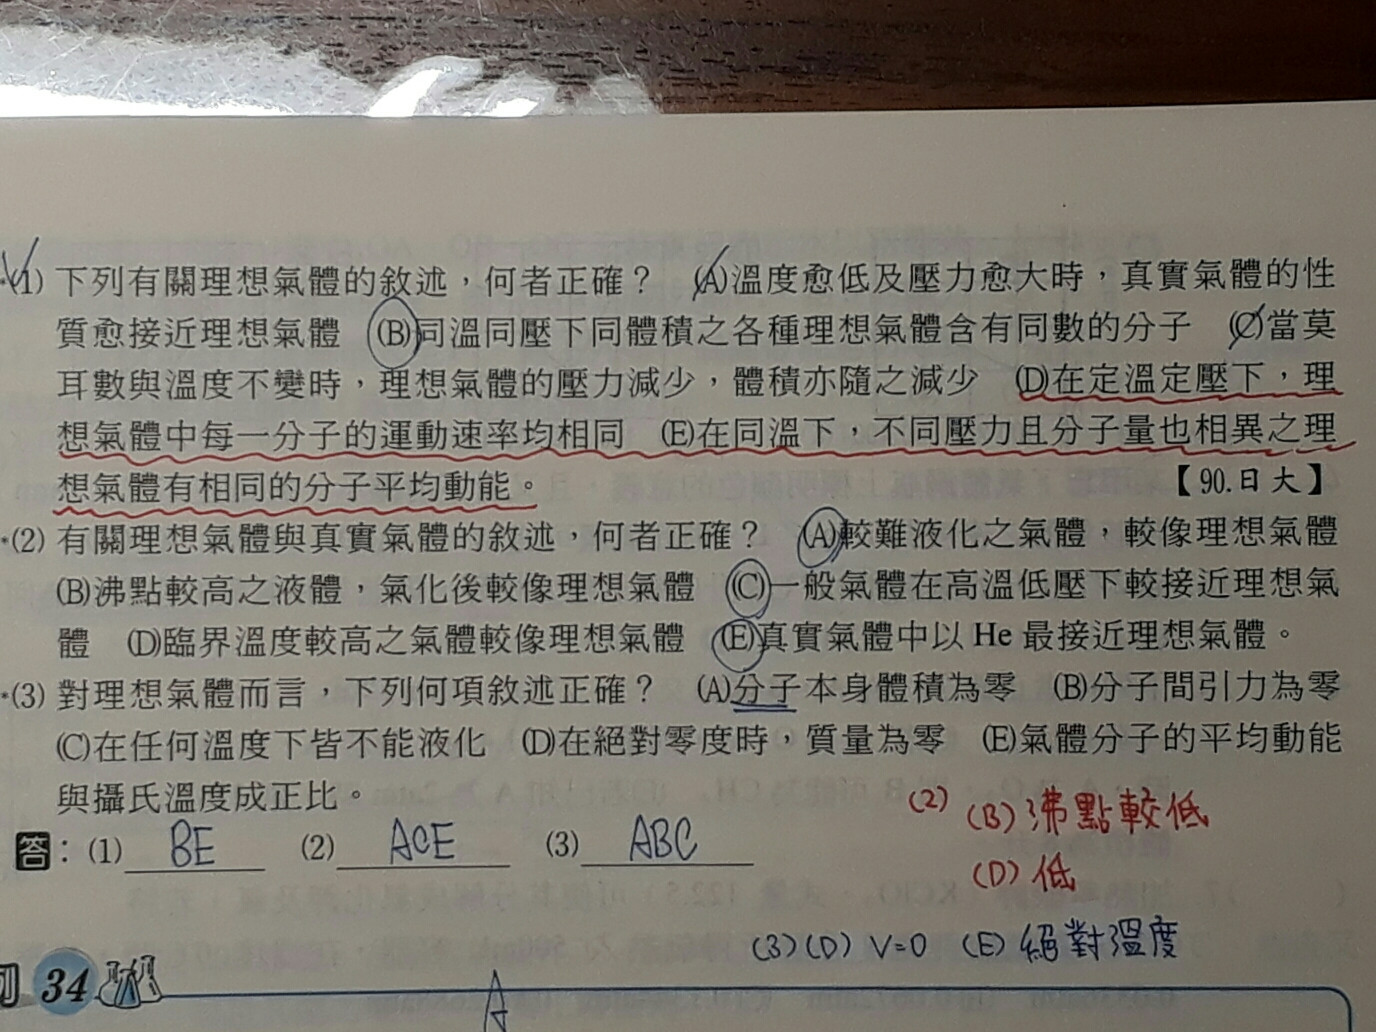 (1) 下列有關理想氣體的敘述，何者正確？ (A)溫度愈低及壓力愈大時，真實氣體的性
質愈接近理想氣體 (B)同溫同壓下同體積之各種理想氣體含有同數的分子 (C)當莫
耳數與溫度不變時，理想氣體的壓力減少，體積亦隨之減少 (D)在定溫定壓下，理
想氣體中每一分子的運動速率均相同 (E)在同溫下，不同壓力且分子量也相異之理
想氣體有相同的分子平均動能。 【90.日大】
*(2) 有關理想氣體與真實氣體的敘述，何者正確？ (A)較難液化之氣體，較像理想氣體
(B)沸點較高之液體，氣化後較像理想氣體 (C)一般氣體在高溫低壓下較接近理想氣
體 (D)臨界溫度較高之氣體較像理想氣體 (E)真實氣體中以 He 最接近理想氣體。
*(3) 對理想氣體而言，下列何項敘述正確？ (A)分子本身體積為零 (B)分子間引力為零
(C)在任何溫度下皆不能液化 (D)在絕對零度時，質量為零 (E)氣體分子的平均動能
與攝氏溫度成正比。
(2) (B) 沸點較低
答：(1) BE (2) ACE (3) ABC
(D) 低
(3) (D) V=0 (E) 絕對溫度
34
A